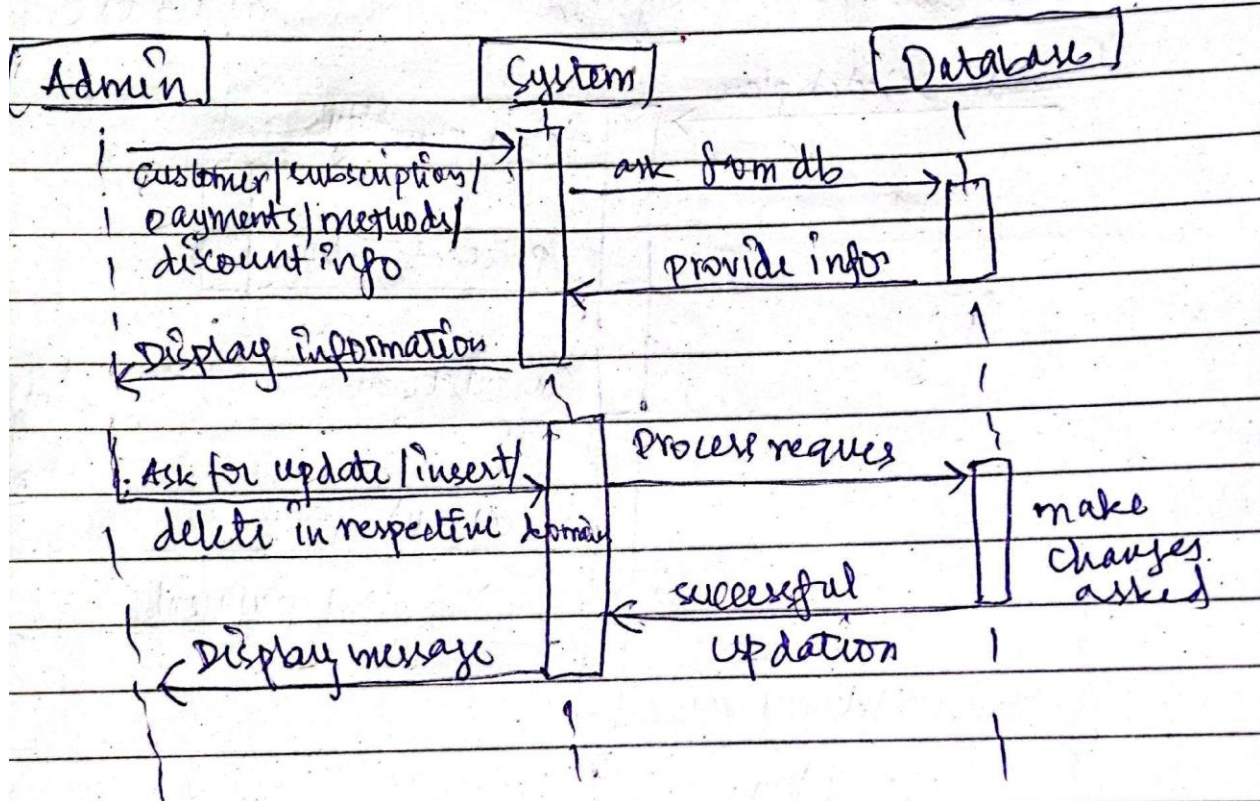 Admin
System
Database
customer/subscription/
payments/methods/
discount info
ask from db
provide infor
Display information
Ask for update/insert/
delete in respective domain
Process reques
make
changes
asked
successful
updation
Display message